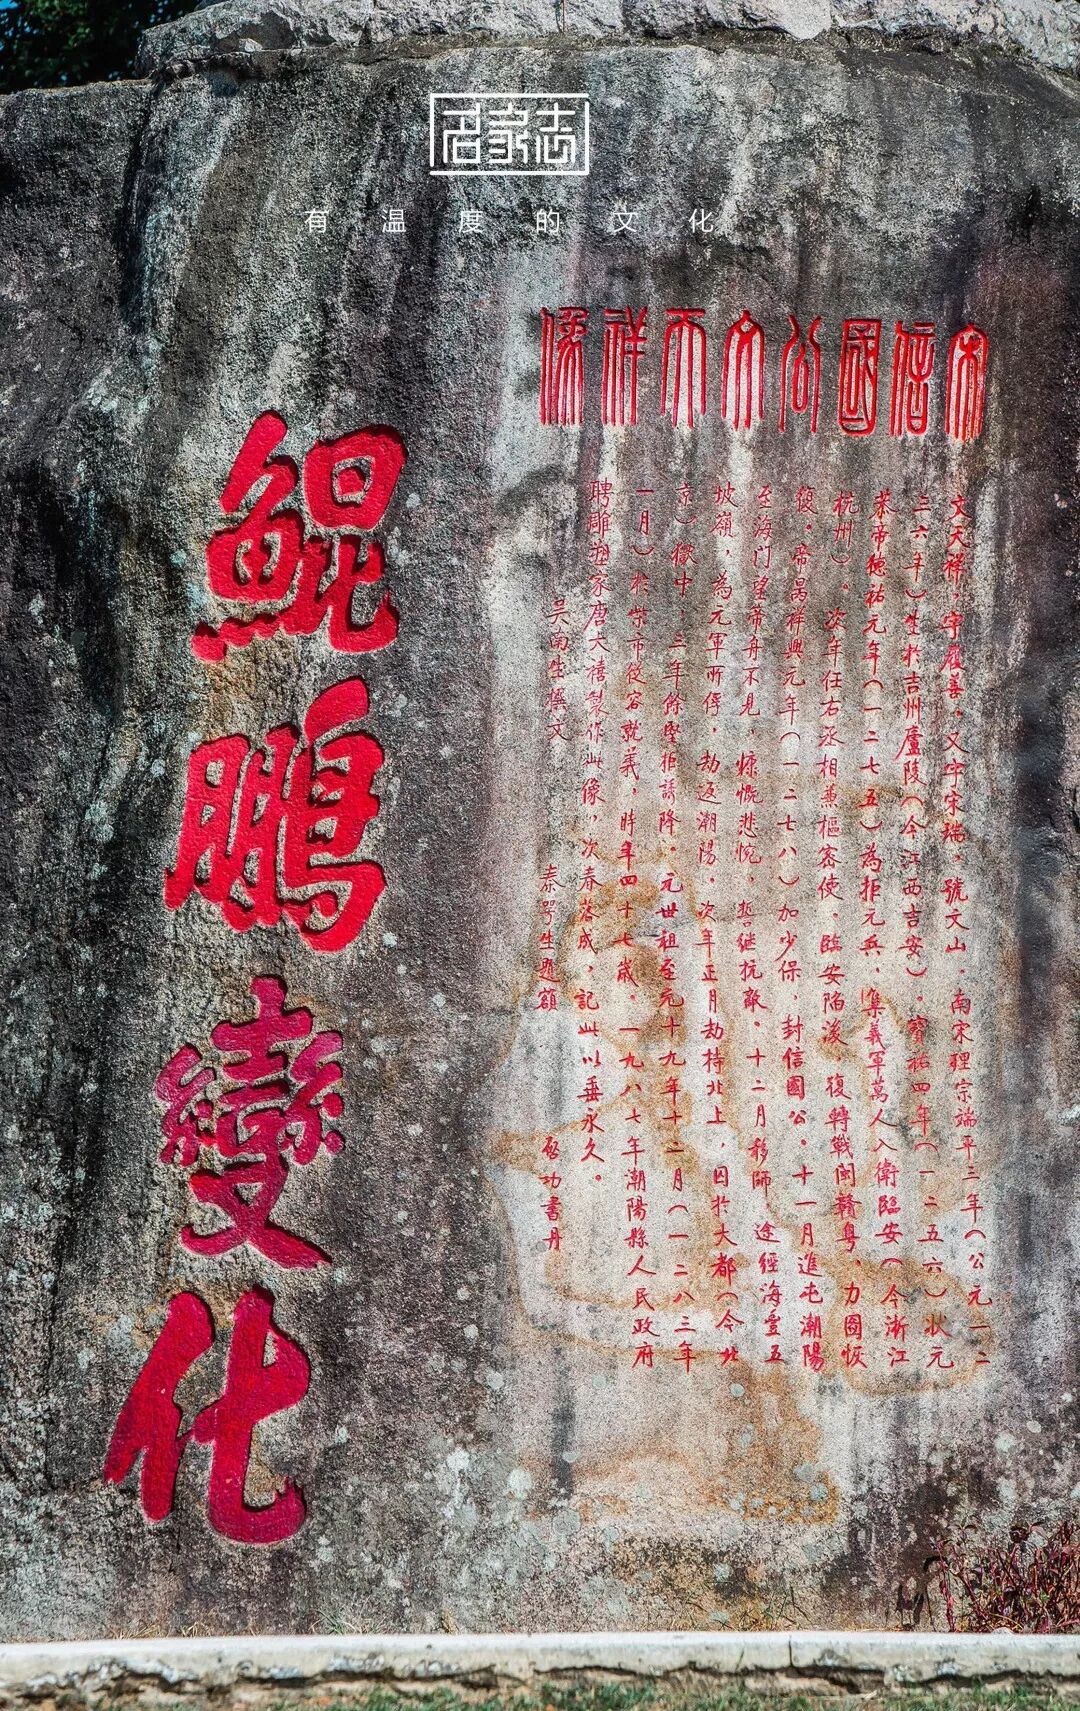 名家志
有温度的文化
宋信國公文天祥像
文天祥，字履善，又字宋瑞，號文山，南宋理宗端平三年（公元一二
三六年）生於吉州廬陵（今江西吉安）。寶祐四年（一二五六）狀元
恭帝德祐元年（一二七五）為拒元兵，集義軍萬人入衛臨安（今浙江
杭州）。次年任右丞相兼樞密使，臨安陷後 復轉戰閩贛粵，力圖恢
復。帝昺祥興元年（一二七八）加少保，封信國公。十一月進屯潮陽
至海门望帝舟不見，慷慨悲惋，誓继抗敵。十二月移師 途經海豐五
坡嶺，為元軍所俘，劫返潮陽。次年正月劫持北上，囚於大都（今北
京）獄中，三年餘堅拒誘降。元世祖至元十九年十二月（一二八三年
一月）於柴市從容就義，時年四十七歲。一九八七年潮陽縣人民政府
聘雕塑家唐大禧製作此像，次春落成，記此以垂永久。
吴南生撰文 秦咢生題額 啟功書丹
鯤鵬變化